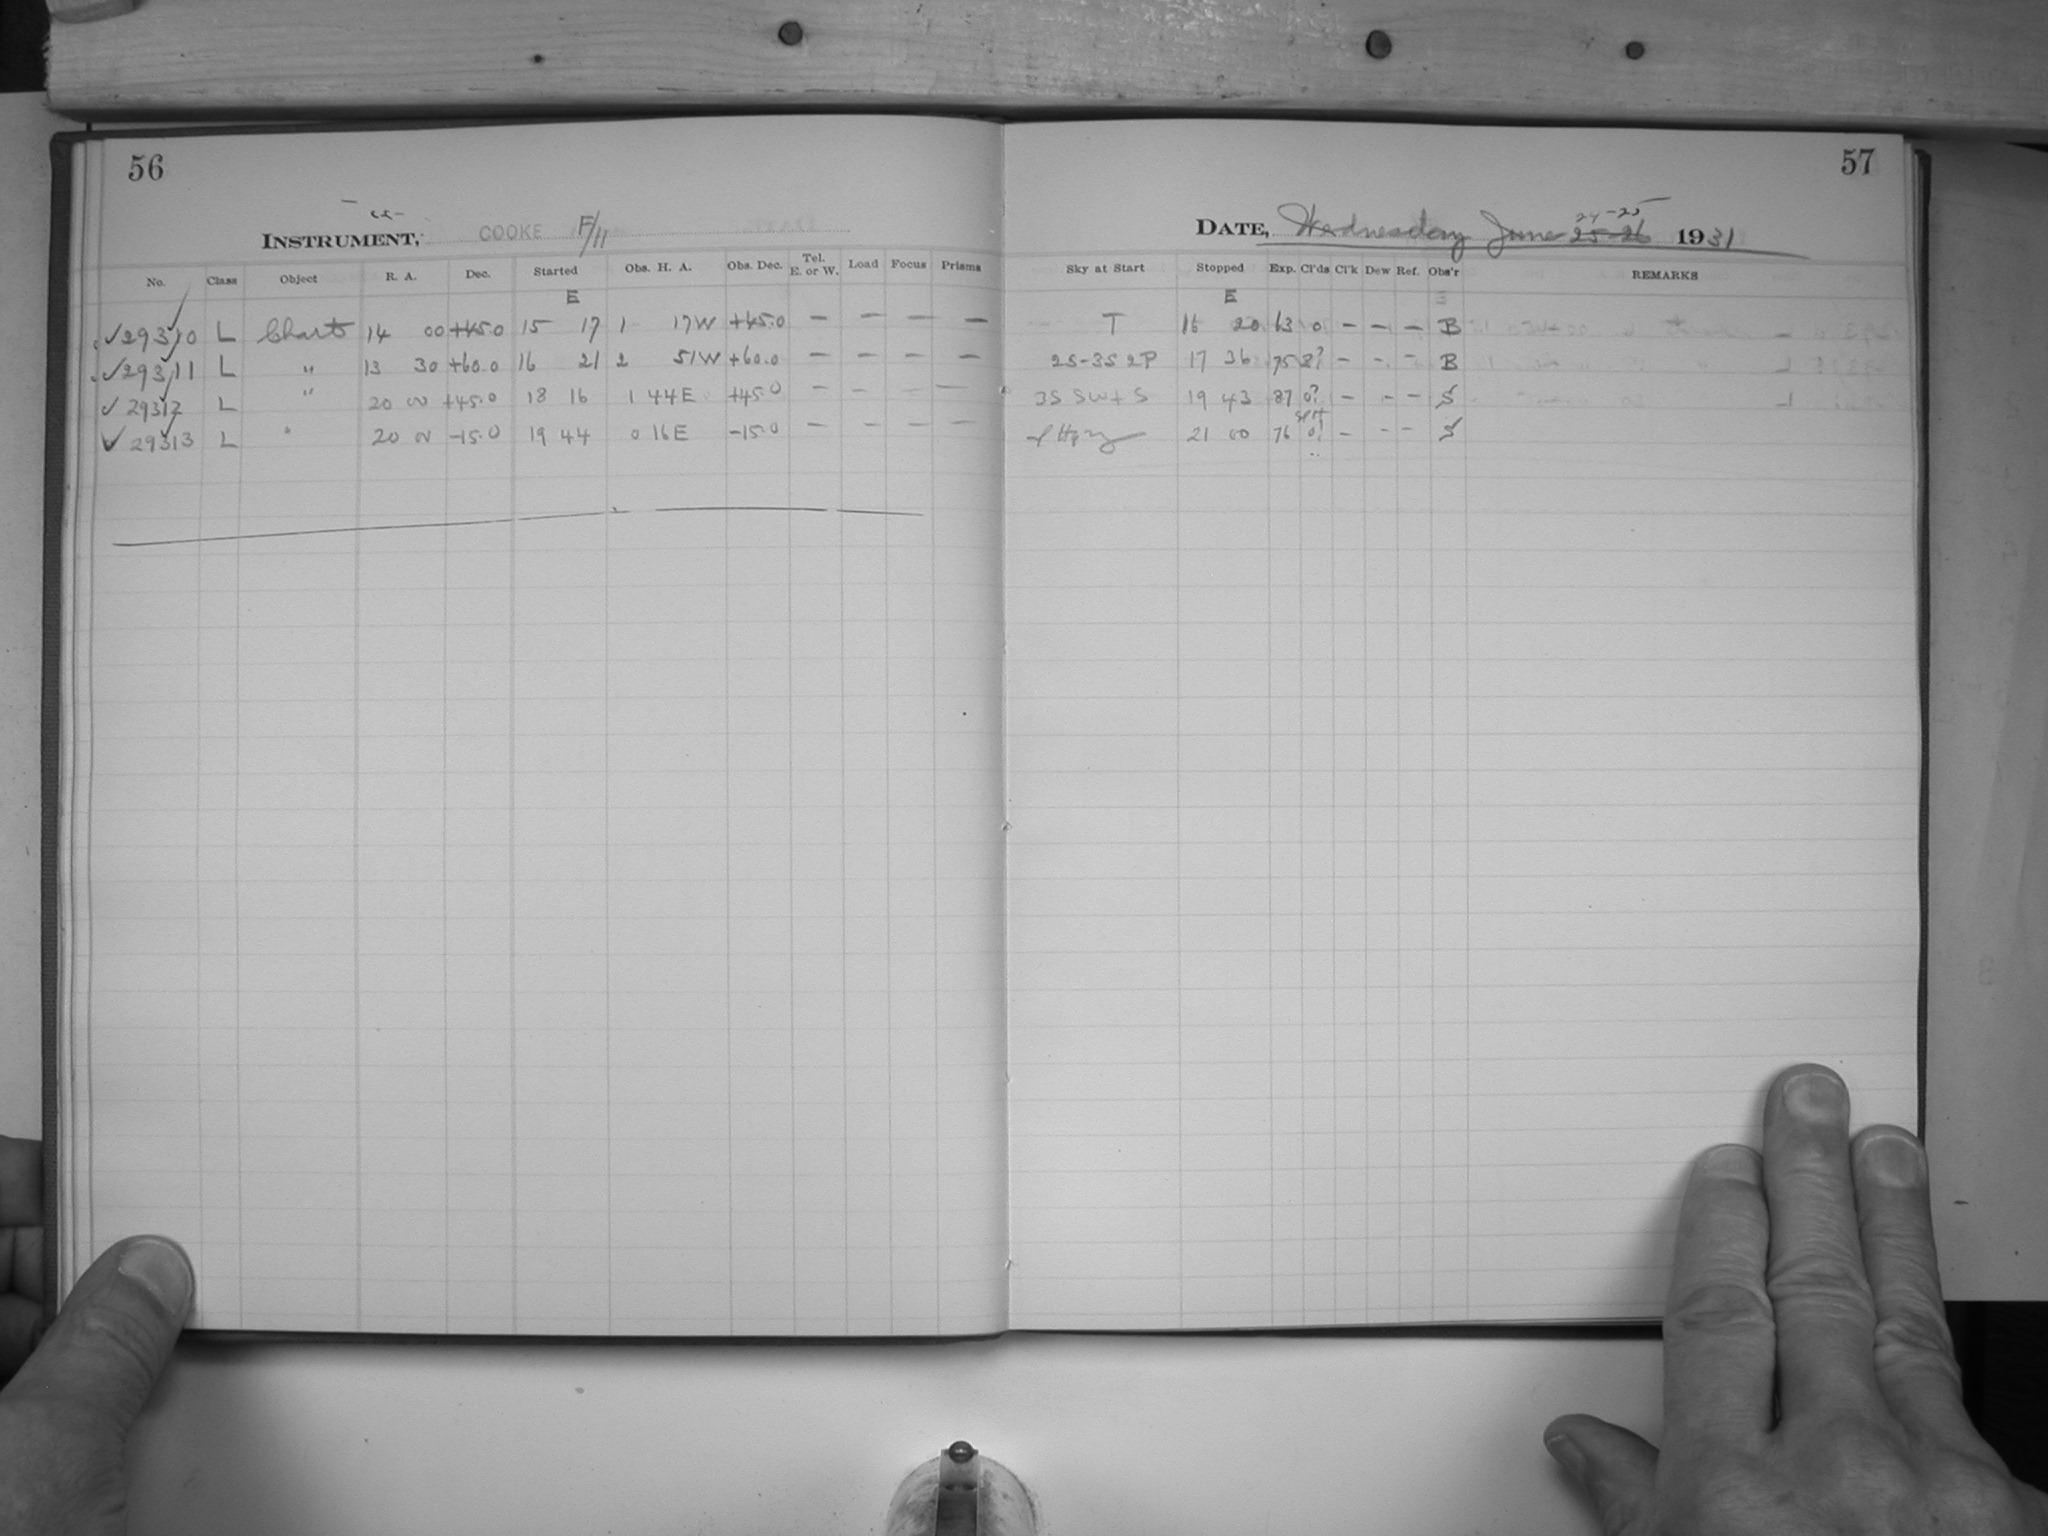 56
INSTRUMENT, COOKE F/11
No. Class Object R. A. Dec. Started Obs. H. A. Obs. Dec. Tel. E. or W. Load Focus Prisms
E
✓29310 L Chart 14 00 +45.0 15 17 1 17W +45.0 — — — —
✓29311 L " 13 30 +60.0 16 21 2 51W +60.0 — — — —
✓29312 L " 20 00 +45.0 18 16 1 44E +45.0 — — — —
✓29313 L " 20 00 -15.0 19 44 0 16E -15.0 — — — —
57
24-25
DATE, Wednesday June 25-26 1931
Sky at Start Stopped Exp. Cl'ds Cl'k Dew Ref. Obs'r REMARKS
E
T 16 20 63 0 — — — B
2S-3S 2P 17 36 75 8? — — — B
3S SW+S 19 43 87 0? — — — S
21 00 76 0! — — — S